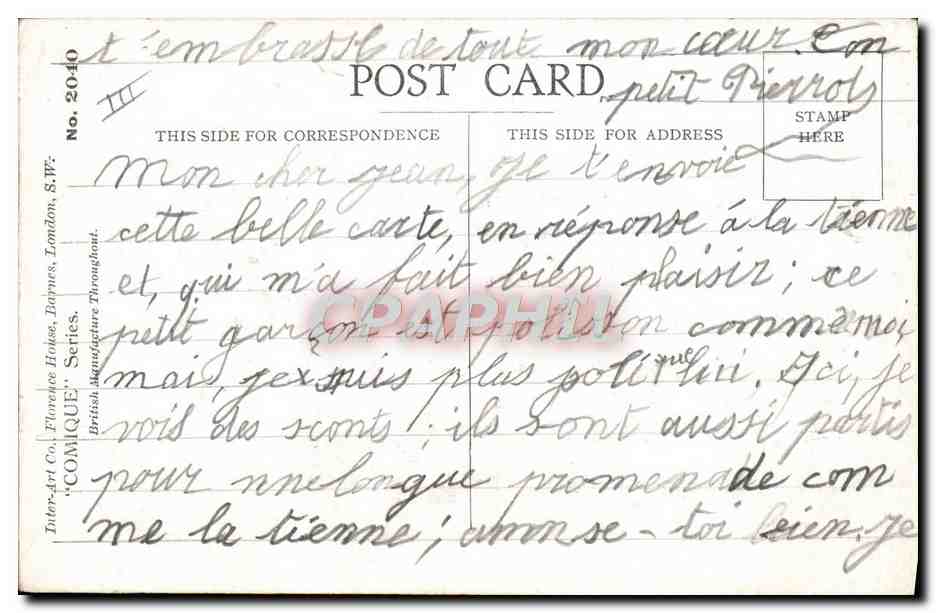 t'embrasse de tout mon cœur. Ton
petit Pierrot
III
POST CARD
THIS SIDE FOR CORRESPONDENCE
THIS SIDE FOR ADDRESS
STAMP
HERE
Mon cher jean, je t'envoie
cette belle carte, en réponse á la tienne
et, qui m'a fait bien plaisir; ce
petit garçon est polisson comme moi,
mais, je suis plus poli que lui. Ici, je
vois des sconts; ils sont aussi partis
pour une longue promenade com
me la tienne; amuse-toi bien. je
No. 2040
"COMIQUE" Series.
Inter-Art Co., Florence House, Barnes, London, S.W.
British Manufacture Throughout.
CPAPHIL